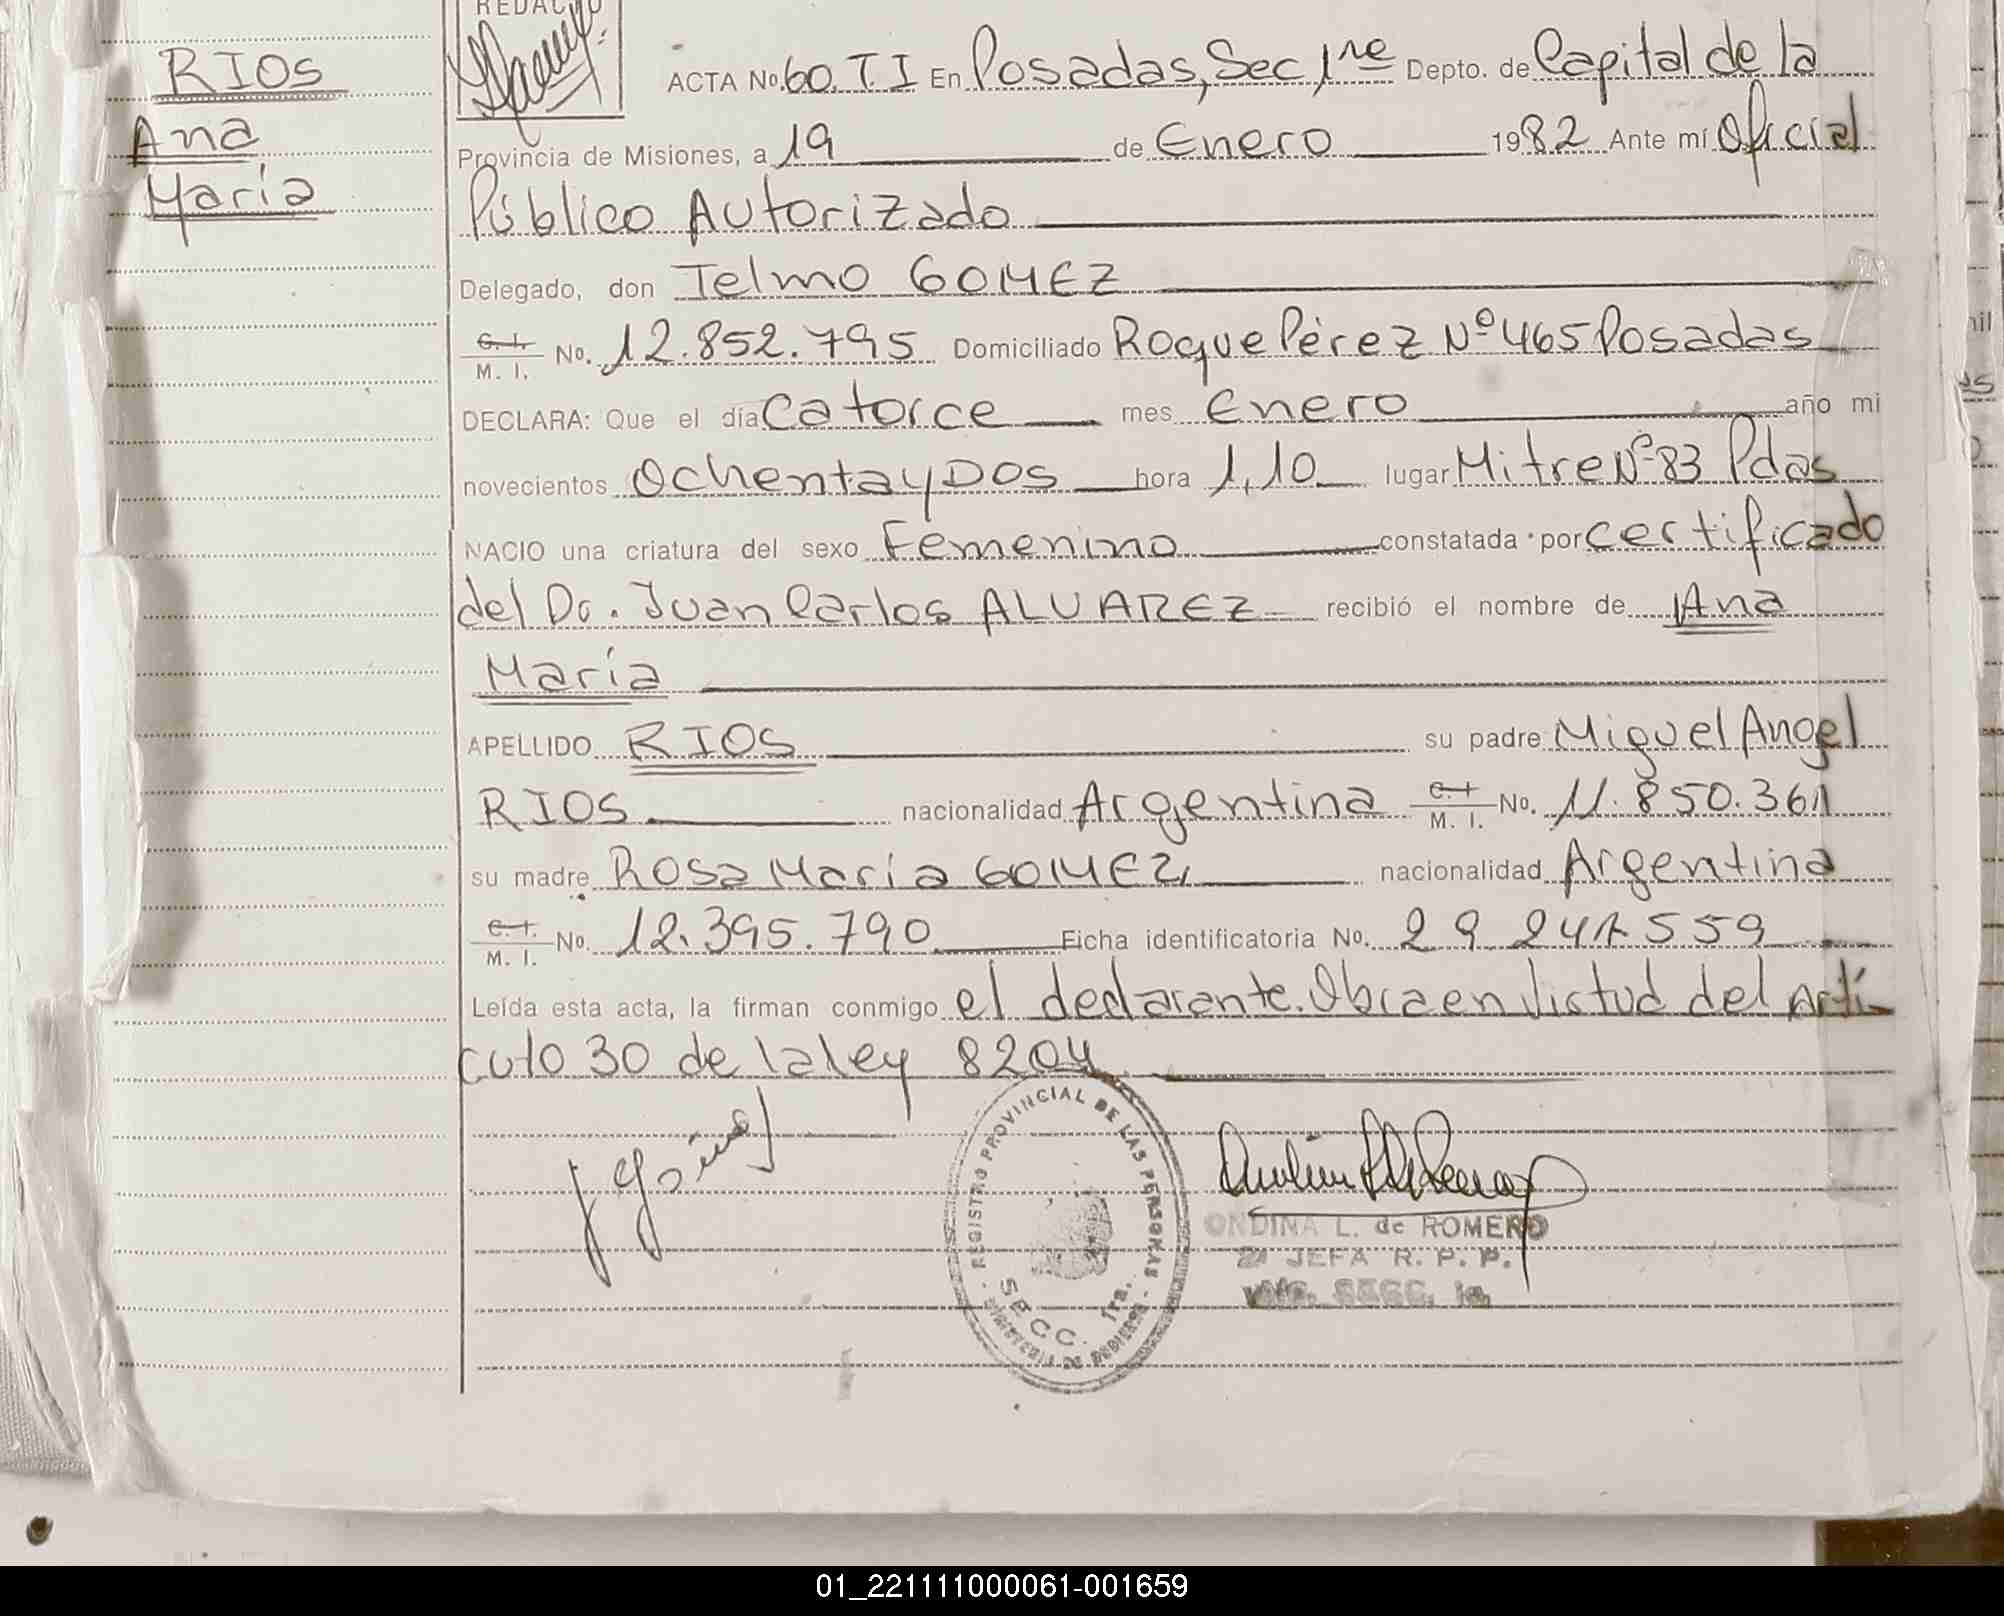 RIOS
Ana
María
REDACTO
ACTA No. 60. T. I En Posadas, Sec 1re Depto. de Capital de la
Provincia de Misiones, a 19 de Enero 1982 Ante mí Oficial
Público Autorizado
Delegado, don Telmo GOMEZ
C. I. / M. I. No. 12.852.795 Domiciliado Roque Pérez Nº 465 Posadas
DECLARA: Que el día Catorce mes Enero año mi
novecientos Ochenta y DOS hora 1,10 lugar Mitre Nº 83 Pdas
NACIO una criatura del sexo Femenino constatada por certificado
del Dr. Juan Carlos ALVAREZ recibió el nombre de Ana
María
APELLIDO RIOS su padre Miguel Angel
RIOS nacionalidad Argentina C. I. / M. I. No. 11.850.361
su madre Rosa María GOMEZ nacionalidad Argentina
C. I. / M. I. No. 12.395.790 Ficha identificatoria No. 29 241 559
Leída esta acta, la firman conmigo el declarante. Obra en virtud del Artí
culo 30 de la ley 8204
REGISTRO PROVINCIAL DE LAS PERSONAS
SECC. 1ra.
ONDINA L. de ROMERO
2ª JEFA R. P. P.
01_221111000061-001659